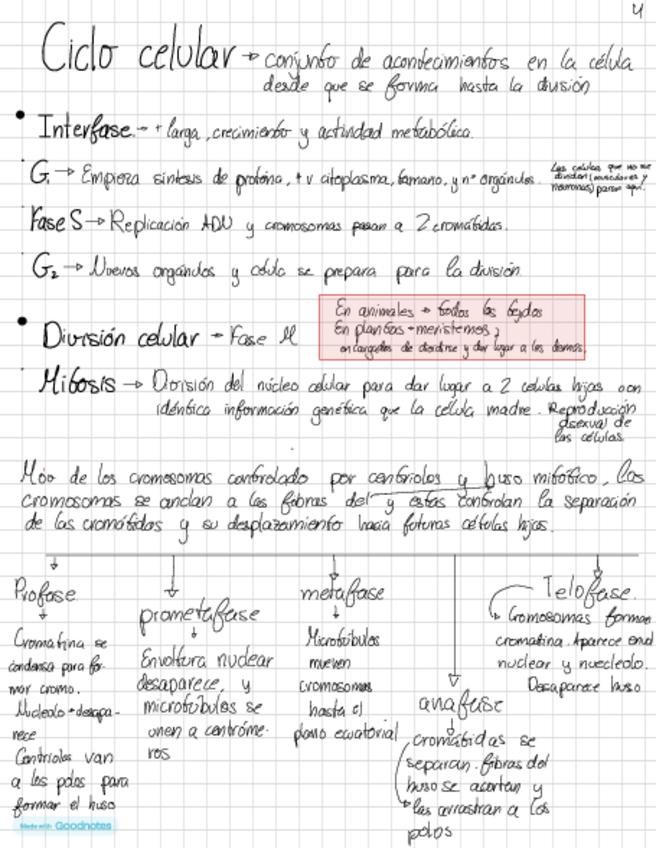 4
Ciclo celular → conjunto de acontecimientos en la célula
desde que se forma hasta la división
• Interfase → + larga, crecimiento y actividad metabólica.
G₁ → Empieza síntesis de proteína, + v citoplasma, tamano, y nº orgánulos.
Las celulas que no se
dividen (musculares y
neuronas) paran aquí.
Fase S → Replicación ADN y cromosomas pasan a 2 cromátidas.
G₂ → Nuevos orgánulos y célula se prepara para la división
En animales → todos los tejidos
En plantas → meristemos,
encargados de dividirse y dar lugar a los demás.
• División celular → Fase M
Mitosis → División del núcleo celular para dar lugar a 2 celulas hijas con
idéntica información genética que la célula madre. Reproducción
asexual de
las células.
Móv de los cromosomas controlado por centriolos y huso mitótico, los
cromosomas se anclan a las fibras del y estas controlan la separación
de las cromátidas y su desplazamiento hacia futuras células hijas.
Profase
Cromatina se
condensa para for-
mar cromo.
Nucleolo → desapa-
rece
Centriolos van
a los polos para
formar el huso
prometafase
Envoltura nuclear
desaparece, y
microtúbulos se
unen a centróme-
ros
metafase
Microtúbulos
mueven
cromosomas
hasta el
plano ecuatorial
anafase
cromátidas se
separan. fibras del
huso se acortan y
las arrastran a los
polos
Telofase
Cromosomas forman
cromatina. Aparece env
nuclear y nuecleolo.
Desaparece huso
Made with Goodnotes